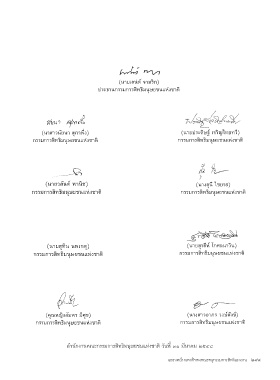 (นายเสน่ห์ จามริก)
ประธานกรรมการสิทธิมนุษยชนแห่งชาติ
(นางสาวนัยนา สุภาพึ่ง) (นายประดิษฐ์ เจริญไทยทวี)
กรรมการสิทธิมนุษยชนแห่งชาติ กรรมการสิทธิมนุษยชนแห่งชาติ
(นายวสันต์ พานิช) (นางสุนี ไชยรส)
กรรมการสิทธิมนุษยชนแห่งชาติ กรรมการสิทธิมนุษยชนแห่งชาติ
(นายสุทิน นพเกตุ) (นายสุรสีห์ โกศลนาวิน)
กรรมการสิทธิมนุษยชนแห่งชาติ กรรมการสิทธิมนุษยชนแห่งชาติ
(คุณหญิงอัมพร มีศุข) (นางสาวอาภร วงษ์สังข์)
กรรมการสิทธิมนุษยชนแห่งชาติ กรรมการสิทธิมนุษยชนแห่งชาติ
สำนักงานคณะกรรมการสิทธิมนุษยชนแห่งชาติ วันที่ มีนาคม